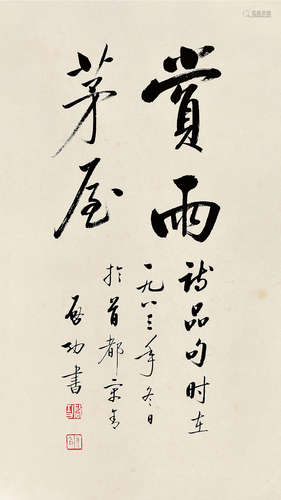 賞雨
茅屋
詩品句时在
一九八三年冬日
於首都
启功書